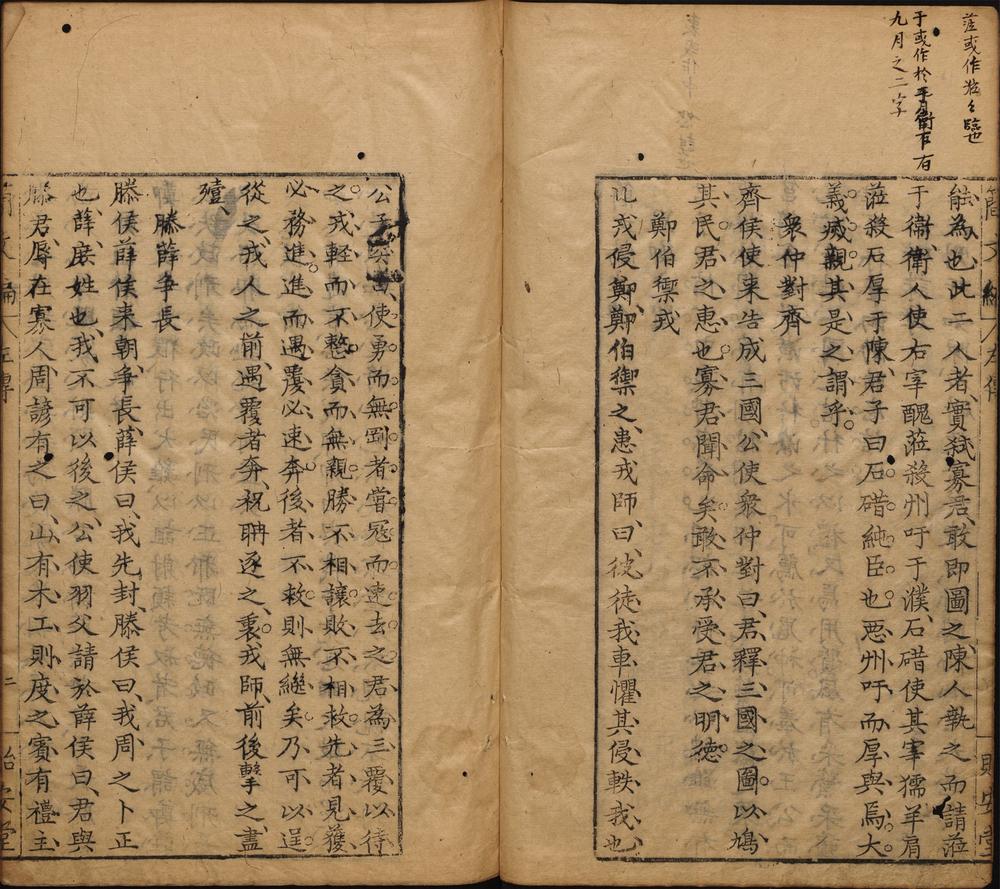 蒞或作涖々臨也
于或作於
九月之二字
能為也、此二人者、實弒寡君、敢即圖之、陳人執之、而請蒞
于衛、衛人使右宰醜蒞殺州吁于濮、石碏使其宰獳羊肩
蒞殺石厚于陳、君子曰、石碏純臣也、惡州吁而厚與焉、大
義滅親、其是之謂乎、
衆仲對齊
齊侯使來告成三國、公使衆仲對曰、君釋三國之圖、以鳩
其民、君之惠也、寡君聞命矣、敢不承受君之明德、
鄭伯禦戎
北戎侵鄭、鄭伯禦之、患戎師曰、彼徒我車、懼其侵軼我也、
公子突曰、使勇而無剛者、嘗寇而速去之、君為三覆以待
之、戎輕而不整、貪而無親、勝不相讓、敗不相救、先者見獲
必務進、進而遇覆必速奔、後者不救則無繼矣、乃可以逞、
從之、戎人之前、遇覆者奔、祝聃逐之、衷戎師、前後擊之、盡
殪、
滕薛争長
滕侯薛侯來朝争長、薛侯曰、我先封、滕侯曰、我周之卜正
也、薛庶姓也、我不可以後之、公使羽父請於薛侯曰、君與
滕君辱在寡人、周諺有之曰、山有木、工則度之、賓有禮、主
二
治安堂